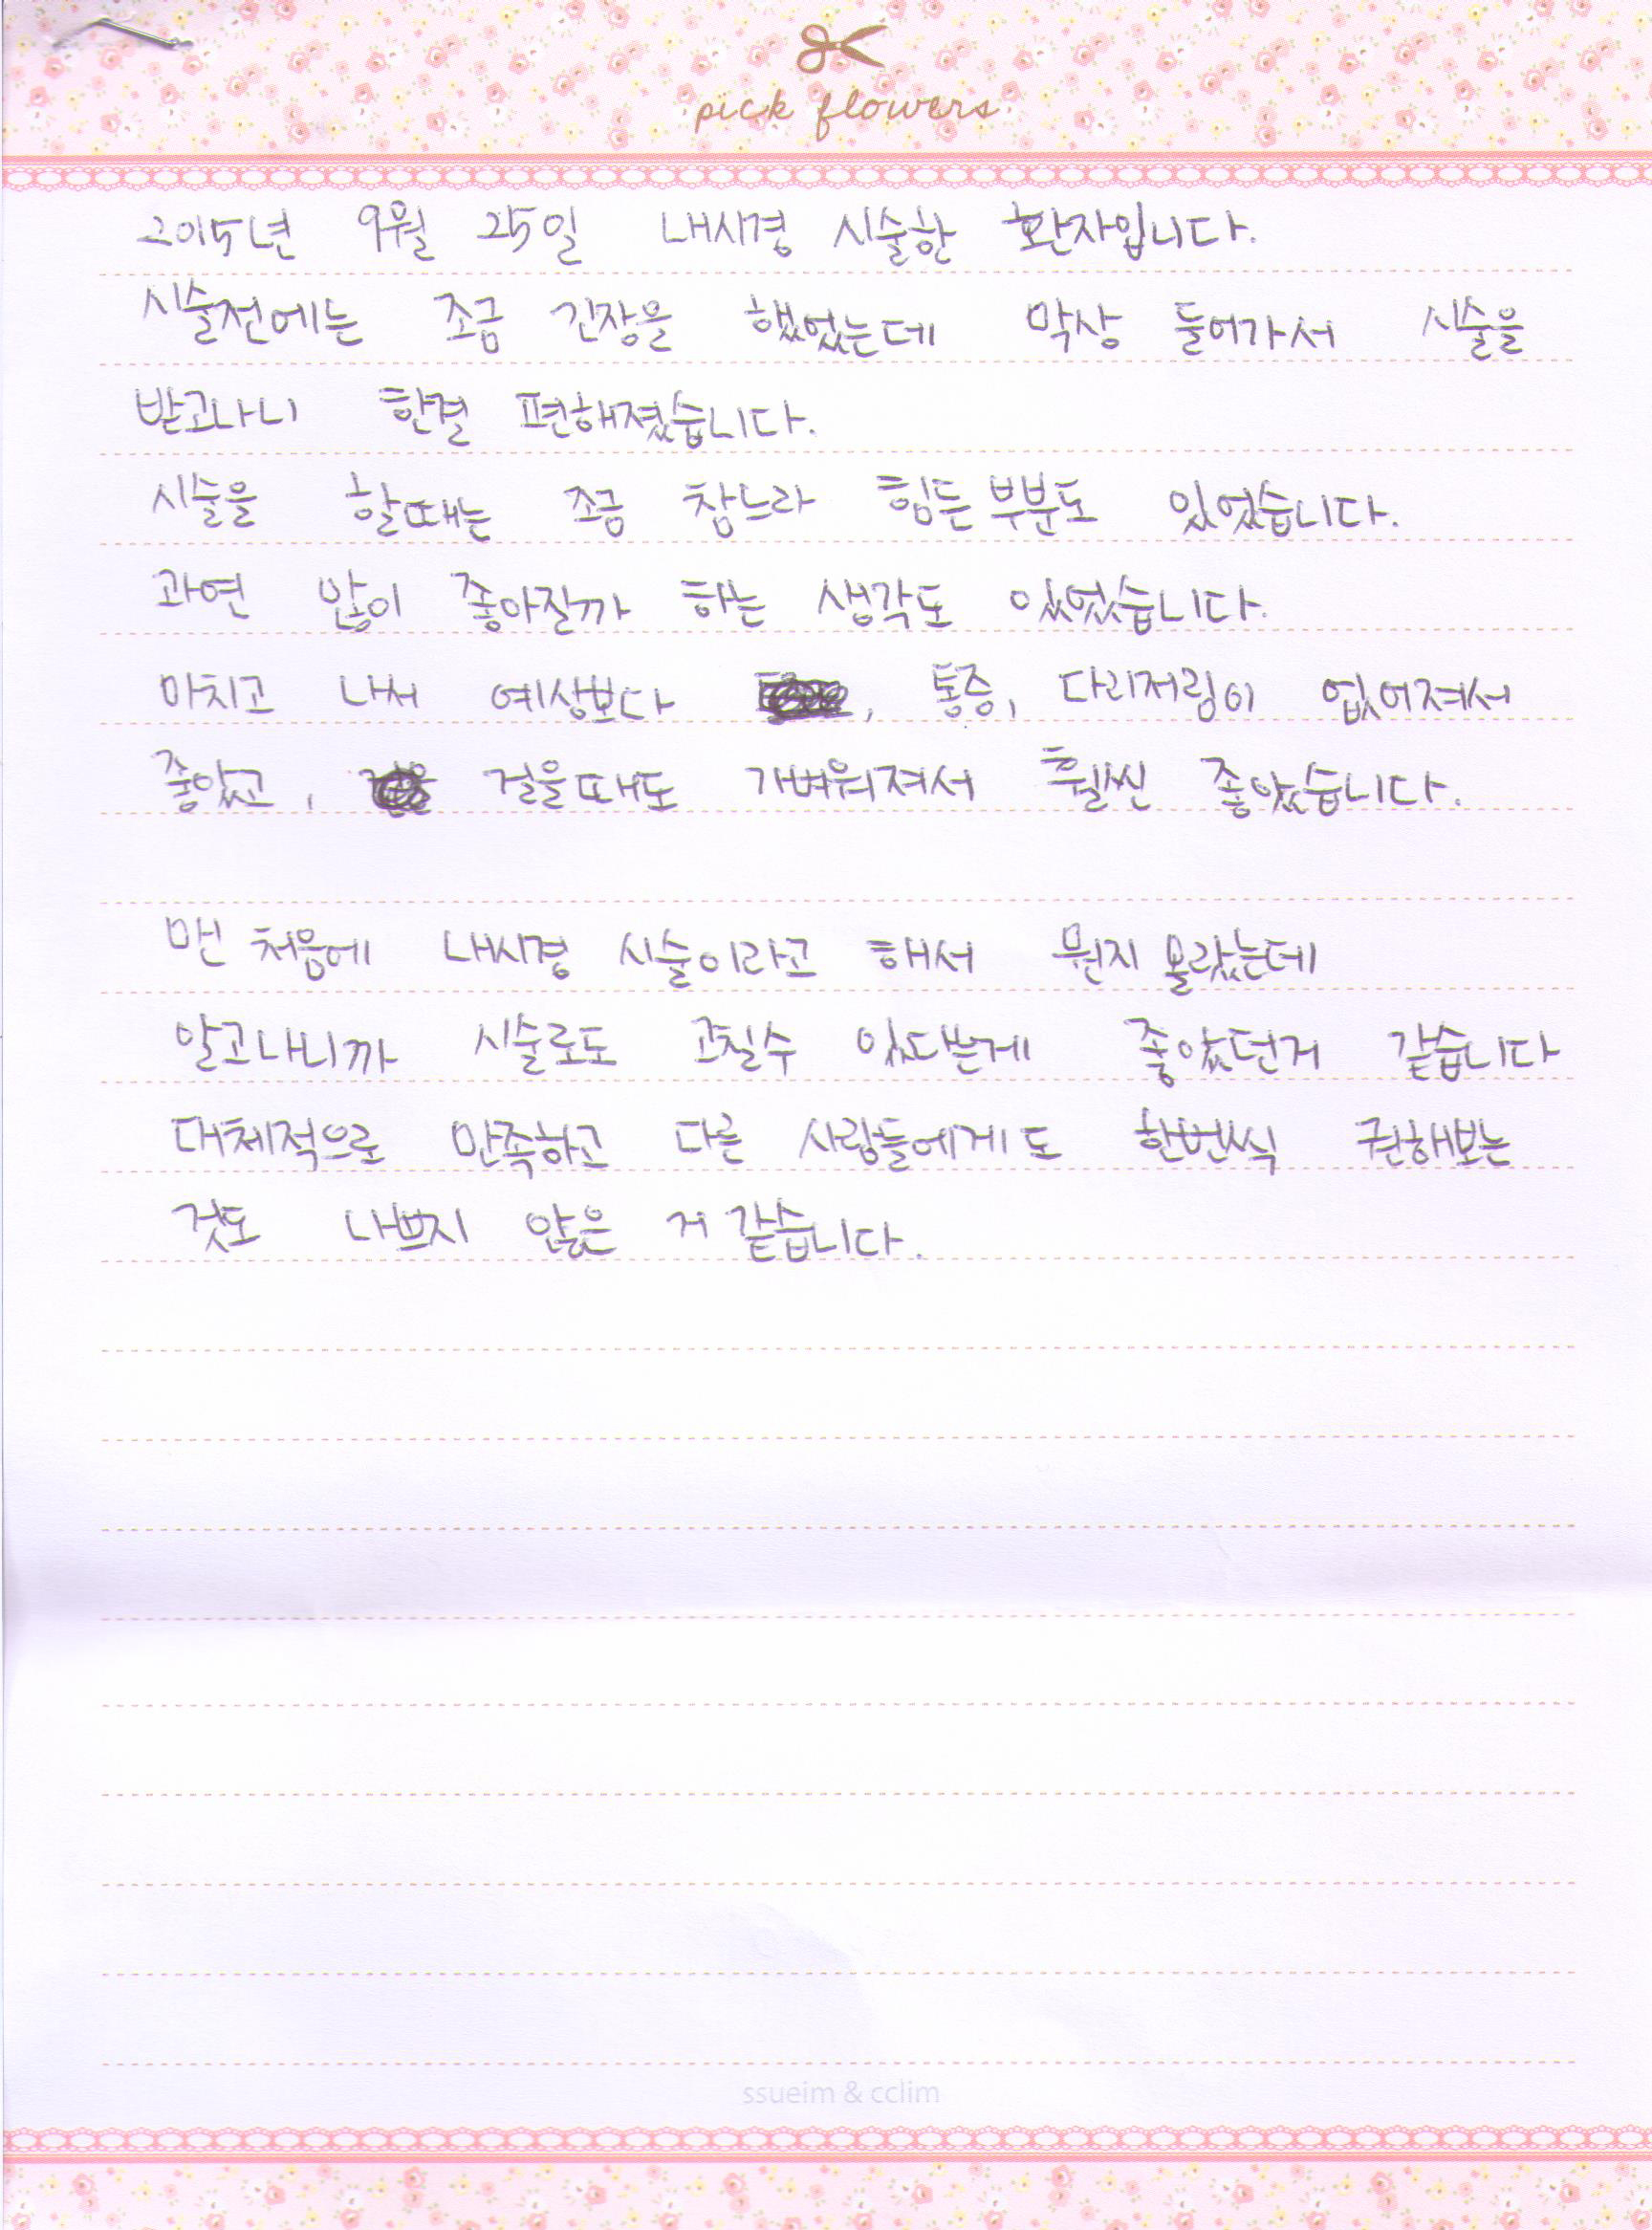 pick flowers
2015년 9월 25일 내시경 시술한 환자입니다.
시술전에는 조금 긴장을 했었는데 막상 들어가서 시술을
받고나니 한결 편해졌습니다.
시술을 할때는 조금 참느라 힘든 부분도 있었습니다.
과연 많이 좋아질까 하는 생각도 있었습니다.
마치고 나서 예상보다 , 통증, 다리저림이 없어져서
좋았고, 걸을때도 가벼워져서 훨씬 좋았습니다.
맨 처음에 내시경 시술이라고 해서 뭔지 몰랐는데
알고나니까 시술로도 고칠수 있다는게 좋았던거 같습니다
대체적으로 만족하고 다른 사람들에게도 한번씩 권해보는
것도 나쁘지 않은 거 같습니다.
ssueim & cclim